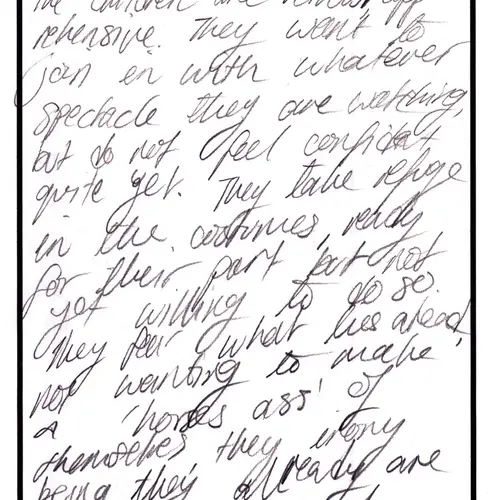 the children are
rehensive. They want to
join en with whatever
spectacle they are watching,
but do not feel confident
quite yet. They take refuge
in the costumes, ready
for their part but not
yet willing to do so.
They fear what lies ahead,
not wanting to make
a 'horses ass' of
themselves they irony
being they already are